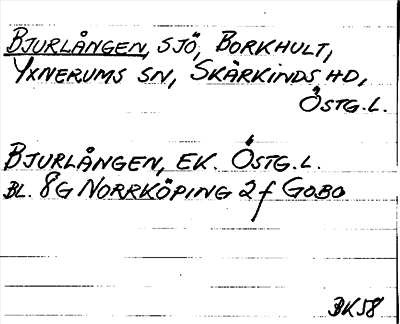 BJURLÅNGEN, SJÖ, BORKHULT,
YXNERUMS SN, SKÄRKINDS HD,
ÖSTG.L.
BJURLÅNGEN, EK. ÖSTG.L.
BL. 8G NORRKÖPING 2f GOBO
BK58